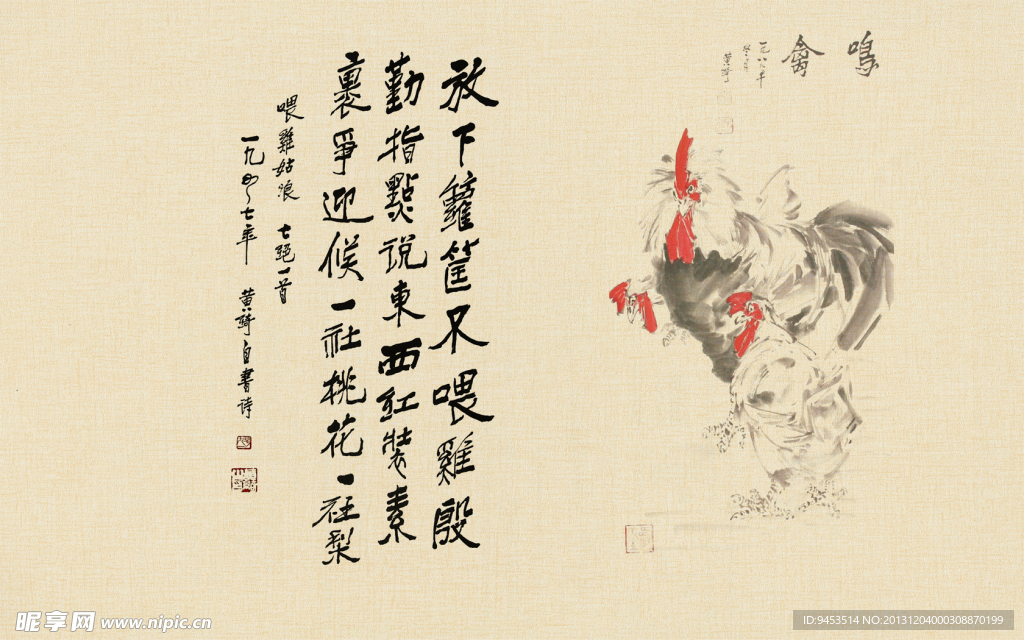 鳴禽
一九八六年
黄琦
放下籮筐不喂雞殷
勤指點说東西紅裝素
裹爭迎候一社桃花一社梨
喂雞姑娘 七絕一首
一九四七年 黄琦自書诗
昵享网 www.nipic.cn
ID:9453514 NO:20131204000308870199